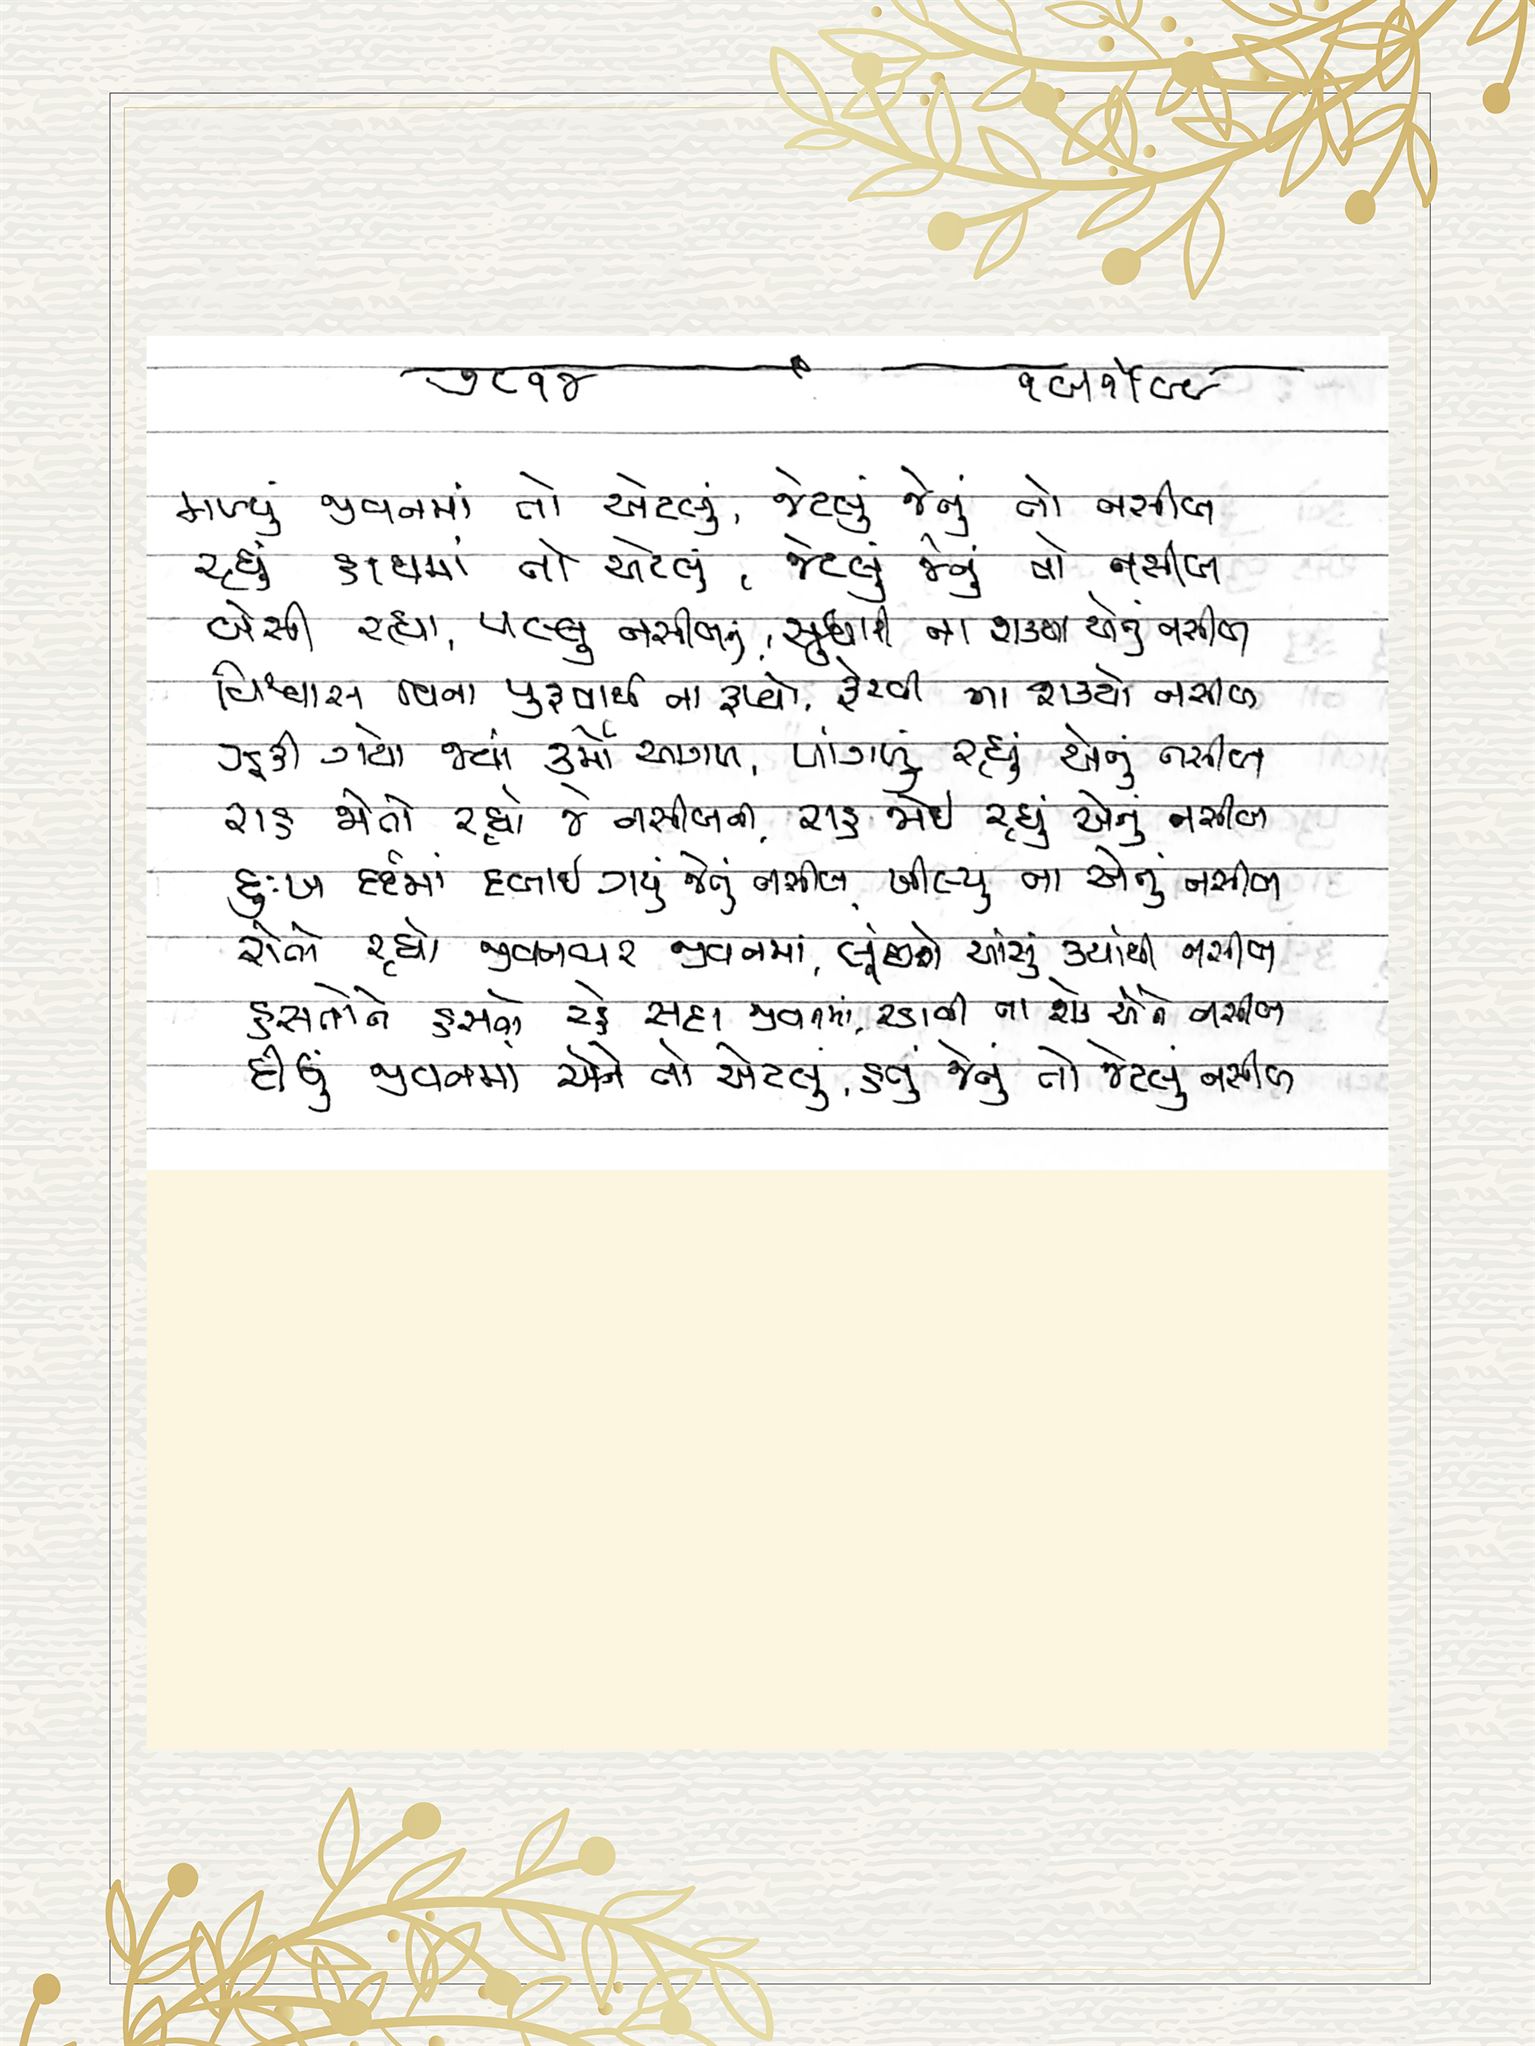 ૭૮૧૪
મળ્યું જીવનમાં તો એટલું, જેટલું જેનું તો નસીબ
રહ્યું હાથમાં તો એટલું, જેટલું જેનું તો નસીબ
બેસી રહ્યા, પલ્લુ નસીબનું, સુધારી ના શક્યા એનું નસીબ
વિશ્વાસ વિના પુરૂષાર્થ ના રૂપ્યો, ફેરવી ના શક્યો નસીબ
ઝૂકી ગયો જ્યાં કર્મો આગળ, પાંગળું રહ્યું એનું નસીબ
રાહ જોતો રહ્યો જે નસીબની, રાહ જોઈ રહ્યું એનું નસીબ
દુઃખ દર્દમાં દબાઈ ગયું જેનું નસીબ, ખીલ્યુ ના એનું નસીબ
રોતો રહ્યો જીવનભર જીવનમાં, લૂંછશે આંસું ક્યાંથી નસીબ
હસતોને હસતો રહે સદા જીવનમાં, રડાવી ના શકે એને નસીબ
દીધું જીવનમાં એને તો એટલું, હતું જેનું તો જેટલું નસીબ